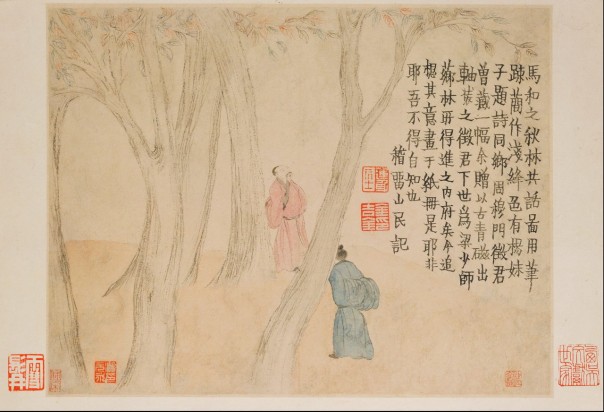 馬和之秋林共話啚用筆
疎蕳作淺絳色有楊妹
子題詩同鄉周穆門徵君
曾藏一幅余贈以古青磁出
軸裝之徵君下世爲梁少師
薌林所得進之内府矣今追
想其意畫于紙冊是耶非
耶吾不得自知也
稽畱山民記